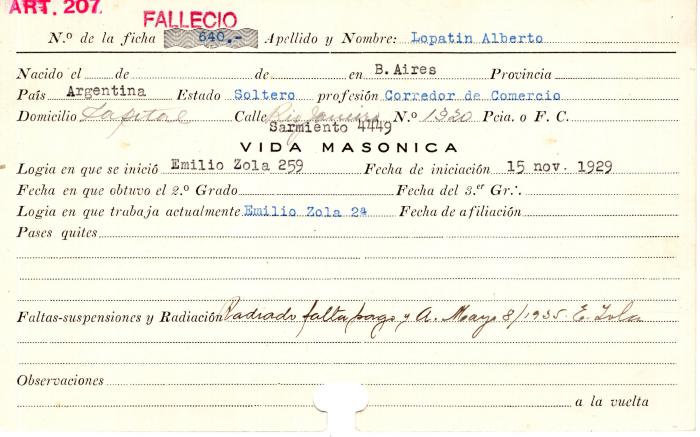 ART. 207.
FALLECIO
N.º de la ficha 640.- Apellido y Nombre: Lopatin Alberto
Nacido el de de en B.Aires Provincia
País Argentina Estado Soltero profesión Corredor de Comercio
Domicilio Capital Calle Rio Janeiro N.º 1320 Pcia. o F. C.
Sarmiento 4449
VIDA MASONICA
Logia en que se inició Emilio Zola 259 Fecha de iniciación 15 nov. 1929
Fecha en que obtuvo el 2.º Grado Fecha del 3.er Gr∴
Logia en que trabaja actualmente Emilio Zola 2ª Fecha de afiliación
Pases quites
Faltas-suspensiones y Radiación Radiado falta pago y A. Mayo 8/1935. E. Zola
Observaciones
a la vuelta